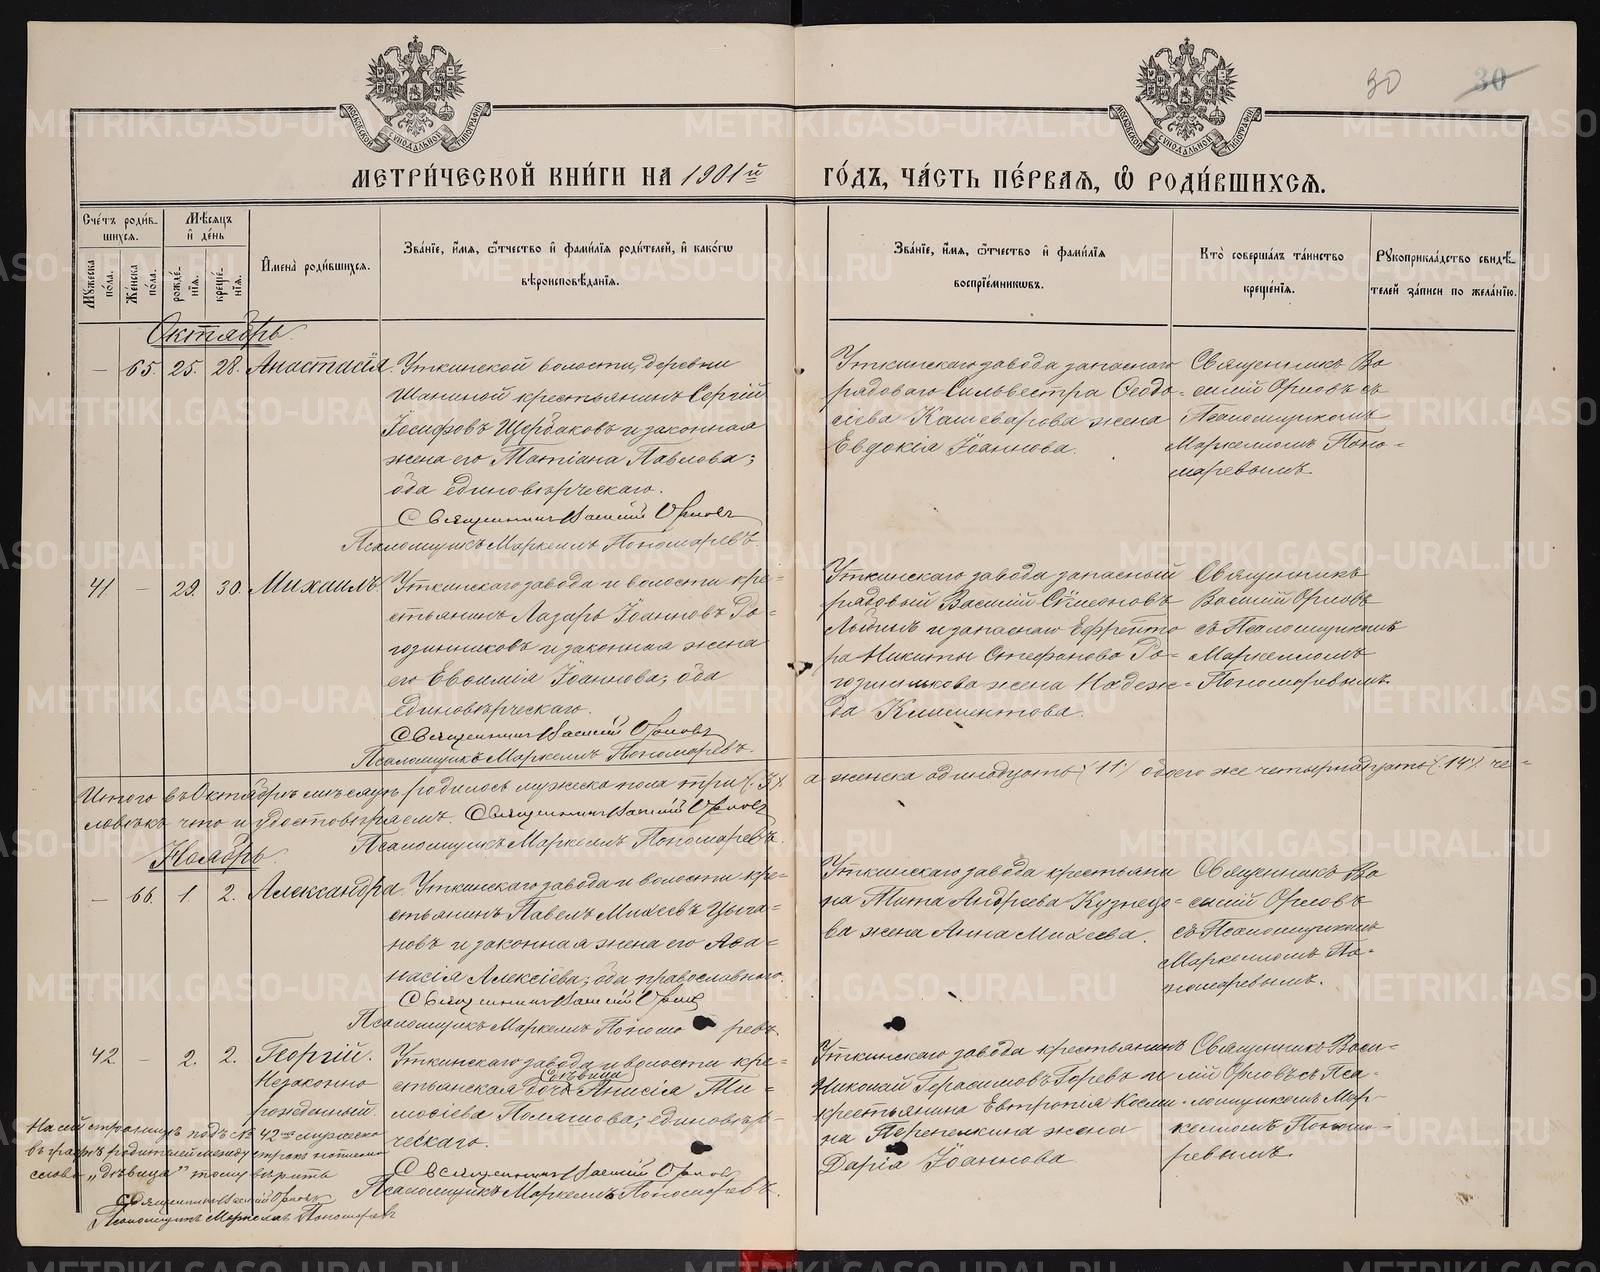 МОСКОВСКОЙ СѴНОДАЛЬНОЙ ТИПОГРАФІИ
МОСКОВСКОЙ СѴНОДАЛЬНОЙ ТИПОГРАФІИ
30
30
МЕТРИ́ЧЕСКОЙ КНИ́ГИ НА 1901й ГО́ДЪ, ЧА́СТЬ ПЕ́РВАЯ, Ѿ РОДИ́ВШИХСЯ.
Сче́тъ роди́в-
шихся.
Мѣ́сяцъ
и҆ де́нь
Мꙋ́жеска
по́ла.
Же́нска
по́ла.
рожде́-
нїя.
креще́-
нїя.
И҆мена̀ роди́вшихся.
Зва́нїе, и҆́мя, ѻ҆́тчество и҆ фами́лїя роди́телей, и҆ како́гѡ
вѣроисповѣ́данїя.
Зва́нїе, и҆́мя, ѻ҆́тчество и҆ фами́лїя
воспрїе́мникѡвъ.
Кто̀ соверша́лъ та́инство
креще́нїя.
Рꙋкоприкла́дство свидѣ́-
телей за́писи по жела́нїю.
Октябрь
— 65. 25. 28. Анастасія.
Уткинской волости, деревни
Шаниной крестьянинъ Сергій
Іосифовъ Щербаковъ и законная
жена его Татіана Павлова;
оба единовѣрческаго.
Священникъ Василій Орловъ
Псаломщикъ Маркеллъ Пономаревъ.
Уткинскаго завода запаснаго
рядоваго Сильвестра Ѳеодо-
сіева Кашеварова жена
Евдокія Іоаннова.
Священникъ Ва
силій Орловъ съ
Псаломщикомъ
Маркелломъ Поно-
маревымъ.
41. — 29. 30. Михаилъ.
Уткинскаго завода и волости кре-
стьянинъ Лазарь Іоанновъ Ро-
гозинниковъ и законная жена
его Евѳимія Іоаннова; оба
единовѣрческаго.
Священникъ Василій Орловъ
Псаломщикъ Маркеллъ Пономаревъ.
Уткинскаго завода запасный
рядовый Василій Сѵмеоновъ
и запаснаго Ефрейто
ра Никиты Стефанова Ро-
гозинникова жена Надеж-
да Климентова.
Священникъ
Василій Орловъ
съ Псаломщикомъ
Маркелломъ
Пономаревымъ.
Итого въ Октябрѣ мѣсяцѣ родилось мужеска пола три (3) а женска одинадцать (11) обоего же четырнадцать (14) че-
ловѣкъ что и удостовѣряемъ. Священникъ Василій Орловъ
Псаломщикъ Маркеллъ Пономаревъ.
Ноябрь.
— 66. 1. 2. Александра.
Уткинскаго завода и волости кре-
стьянинъ Павелъ Михеевъ Цыга-
новъ и законная жена его Аѳа-
насія Алексіева; оба православнаго.
Священникъ Василій Орловъ
Псаломщикъ Маркеллъ Пономаревъ
Уткинскаго завода крестьяни
на Тита Андреева Кузнецо-
ва жена Анна Михеева.
Священникъ Ва
силій Орловъ
съ Псаломщикомъ
Маркелломъ По-
номаревымъ.
42. — 2. 2. Георгій.
Незаконно
рожденный.
Уткинскаго завода и волости кре-
дѣвица
стьянская дочь Анисія Ти-
моѳіева ; единовѣр-
ческаго.
Священникъ Василій Орловъ
Псаломщикъ Маркеллъ Пономаревъ.
Уткинскаго завода крестьянинъ
Николай Герасимовъ и
крестьянина Евтропія Косми-
на Перепелкина жена
Дарія Іоаннова
Священникъ Васи-
лій Орловъ съ Пса-
ломщикомъ Мар-
келломъ Понома-
ревымъ.
На сей страницѣ подъ № 42мъ мужеска
въ графѣ родителей между строкъ написано
слово „дѣвица" тому вѣрить
Священникъ Василій Орловъ
Псаломщикъ Маркеллъ Пономаревъ
METRIKI.GASO-URAL.RU